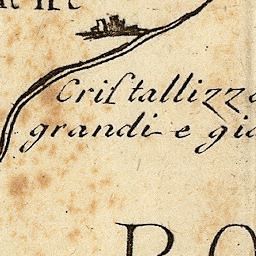 Criſtallizza
grandi e gia
R O